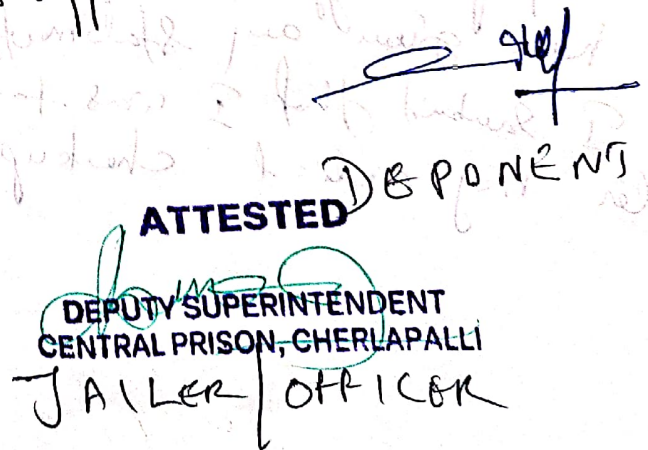 DEPONENT
ATTESTED
DEPUTY SUPERINTENDENT
CENTRAL PRISON, CHERLAPALLI
JAILER / OFFICER